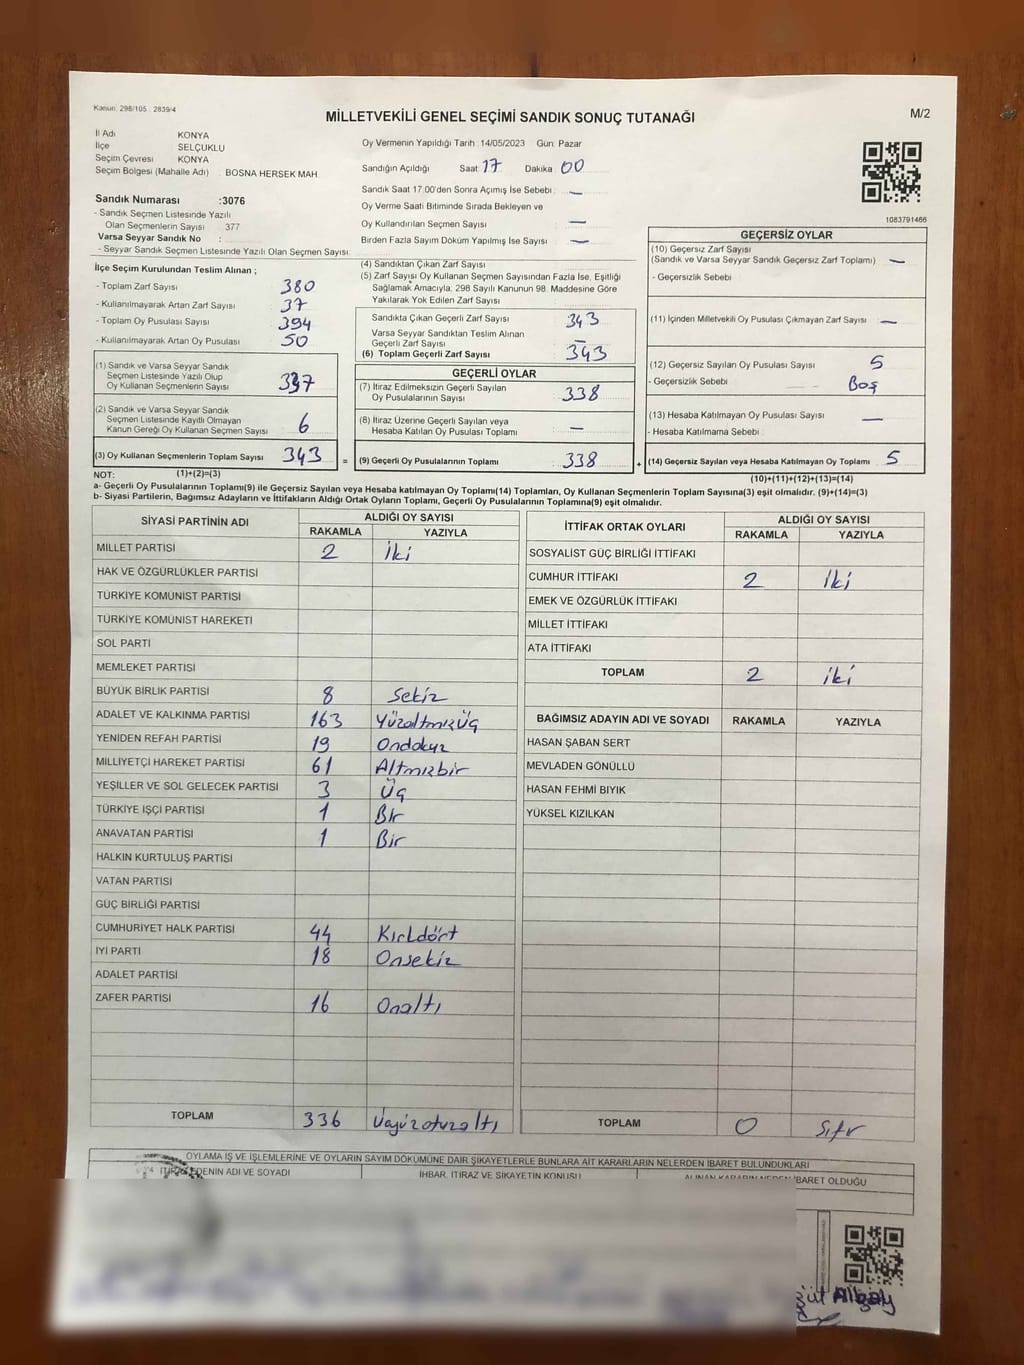 Kanun: 298/105 2839/4
MİLLETVEKİLİ GENEL SEÇİMİ SANDIK SONUÇ TUTANAĞI
M/2
İl Adı KONYA
İlçe SELÇUKLU
Seçim Çevresi KONYA
Seçim Bölgesi (Mahalle Adı) BOSNA HERSEK MAH.
Sandık Numarası :3076
- Sandık Seçmen Listesinde Yazılı
Olan Seçmenlerin Sayısı 377
Varsa Seyyar Sandık No :
- Seyyar Sandık Seçmen Listesinde Yazılı Olan Seçmen Sayısı
Oy Vermenin Yapıldığı Tarih 14/05/2023 Gün: Pazar
Sandığın Açıldığı Saat 17 Dakika 00
Sandık Saat 17.00'den Sonra Açımış İse Sebebi : —
Oy Verme Saati Bitiminde Sırada Bekleyen ve
Oy Kullandırılan Seçmen Sayısı —
Birden Fazla Sayım Döküm Yapılmış İse Sayısı —
1083791466
İlçe Seçim Kurulundan Teslim Alınan ;
- Toplam Zarf Sayısı 380
- Kullanılmayarak Artan Zarf Sayısı 37
- Toplam Oy Pusulası Sayısı 394
- Kullanılmayarak Artan Oy Pusulası 50
(1) Sandık ve Varsa Seyyar Sandık
Seçmen Listesinde Yazılı Olup
Oy Kullanan Seçmenlerin Sayısı 337
(2) Sandık ve Varsa Seyyar Sandık
Seçmen Listesinde Kayıtlı Olmayan
Kanun Gereği Oy Kullanan Seçmen Sayısı 6
(3) Oy Kullanan Seçmenlerin Toplam Sayısı 343 =
(4) Sandıktan Çıkan Zarf Sayısı
(5) Zarf Sayısı Oy Kullanan Seçmen Sayısından Fazla İse, Eşitliği
Sağlamak Amacıyla, 298 Sayılı Kanunun 98. Maddesine Göre
Yakılarak Yok Edilen Zarf Sayısı
Sandıkta Çıkan Geçerli Zarf Sayısı 343
Varsa Seyyar Sandıktan Teslim Alınan
Geçerli Zarf Sayısı —
(6) Toplam Geçerli Zarf Sayısı 343
GEÇERLİ OYLAR
(7) İtiraz Edilmeksizin Geçerli Sayılan
Oy Pusulalarının Sayısı 338
(8) İtiraz Üzerine Geçerli Sayılan veya
Hesaba Katılan Oy Pusulası Toplamı —
(9) Geçerli Oy Pusulalarının Toplamı 338 +
GEÇERSİZ OYLAR
(10) Geçersiz Zarf Sayısı
(Sandık ve Varsa Seyyar Sandık Geçersiz Zarf Toplamı) —
- Geçersizlik Sebebi
(11) İçinden Milletvekili Oy Pusulası Çıkmayan Zarf Sayısı —
(12) Geçersiz Sayılan Oy Pusulası Sayısı 5
- Geçersizlik Sebebi Boş
(13) Hesaba Katılmayan Oy Pusulası Sayısı —
- Hesaba Katılmama Sebebi
(14) Geçersiz Sayılan veya Hesaba Katılmayan Oy Toplamı 5
NOT: (1)+(2)=(3) (10)+(11)+(12)+(13)=(14)
a- Geçerli Oy Pusulaları(9) ile Geçersiz Sayılan veya Hesaba katılmayan Oy Toplamı(14) Toplamları, Oy Kullanan Seçmenlerin Toplam Sayısına(3) eşit olmalıdır. (9)+(14)=(3)
b- Siyasi Partilerin, Bağımsız Adayların ve İttifakların Aldığı Ortak Oyların Toplamı, Geçerli Oy Pusulalarının Toplamına(9) eşit olmalıdır.
SİYASİ PARTİNİN ADI ALDIĞI OY SAYISI
RAKAMLA YAZIYLA
MİLLET PARTİSİ 2 iki
HAK VE ÖZGÜRLÜKLER PARTİSİ
TÜRKİYE KOMÜNİST PARTİSİ
TÜRKİYE KOMÜNİST HAREKETİ
SOL PARTİ
MEMLEKET PARTİSİ
BÜYÜK BİRLİK PARTİSİ 8 Sekiz
ADALET VE KALKINMA PARTİSİ 163 Yüzaltmışüç
YENİDEN REFAH PARTİSİ 19 Ondokuz
MİLLİYETÇİ HAREKET PARTİSİ 61 Altmışbir
YEŞİLLER VE SOL GELECEK PARTİSİ 3 Üç
TÜRKİYE İŞÇİ PARTİSİ 1 Bir
ANAVATAN PARTİSİ 1 Bir
HALKIN KURTULUŞ PARTİSİ
VATAN PARTİSİ
GÜÇ BİRLİĞİ PARTİSİ
CUMHURİYET HALK PARTİSİ 44 Kırkdört
İYİ PARTİ 18 Onsekiz
ADALET PARTİSİ
ZAFER PARTİSİ 16 Onaltı
TOPLAM 336 Üçyüzotuzaltı
İTTİFAK ORTAK OYLARI ALDIĞI OY SAYISI
RAKAMLA YAZIYLA
SOSYALİST GÜÇ BİRLİĞİ İTTİFAKI
CUMHUR İTTİFAKI 2 iki
EMEK VE ÖZGÜRLÜK İTTİFAKI
MİLLET İTTİFAKI
ATA İTTİFAKI
TOPLAM 2 iki
BAĞIMSIZ ADAYIN ADI VE SOYADI RAKAMLA YAZIYLA
HASAN ŞABAN SERT
MEVLADEN GÖNÜLLÜ
HASAN FEHMİ BIYIK
YÜKSEL KIZILKAN
TOPLAM 0 Sıfır
OYLAMA İŞ VE İŞLEMLERİNE VE OYLARIN SAYIM DÖKÜMÜNE DAİR ŞİKAYETLERLE BUNLARA AİT KARARLARIN NELERDEN İBARET BULUNDUKLARI
İTİRAZ EDENİN ADI VE SOYADI İHBAR, İTİRAZ VE ŞİKAYETİN KONUSU ALINAN KARARIN NEDEN İBARET OLDUĞU